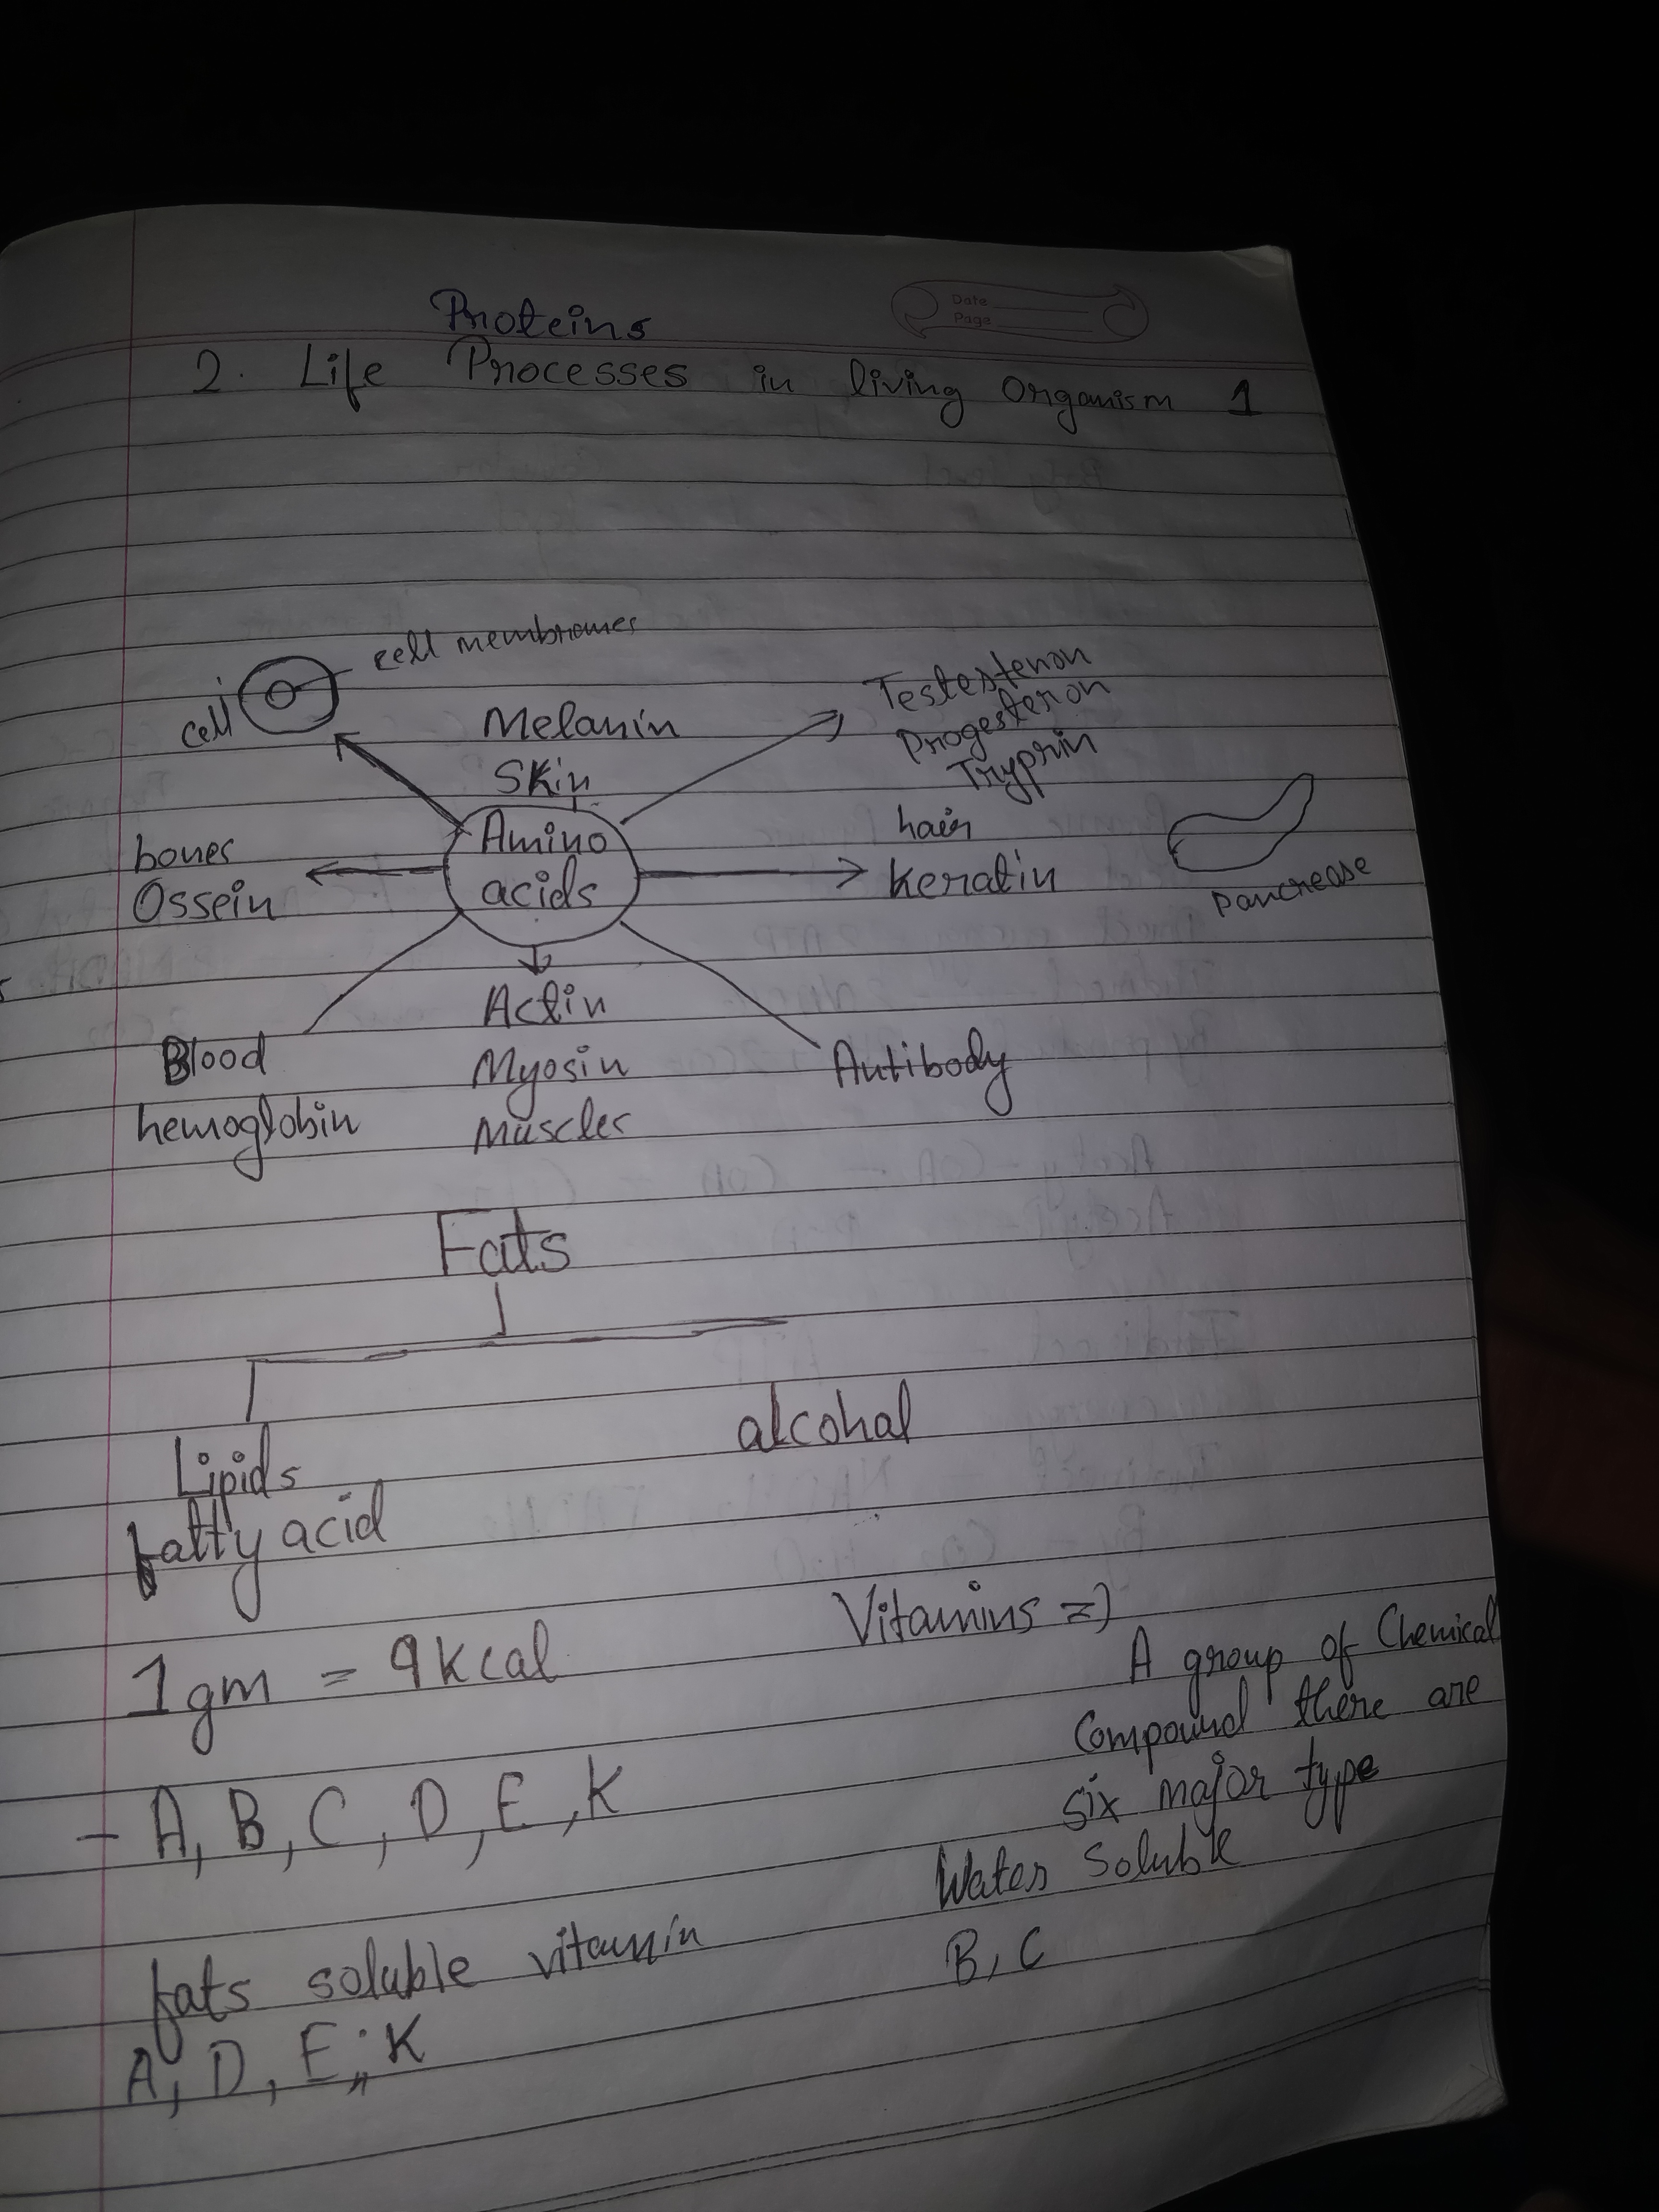 Proteins
Date
Page
2. Life Processes in living Organism 1
cell membranes
cell
Melanin
Skin
Testesteron
Progesteron
Tryprin
Amino
acids
bones
Ossein
hair
Keratin
Pancrease
Blood
hemoglobin
Actin
Myosin
Muscles
Antibody
Fats
Lipids
fatty acid
alcohal
1gm = 9Kcal
Vitamins =)
A group of Chemical
Compound there are
six major type
- A, B, C, D, E, K
Water Soluble
B, C
fats soluble vitamin
A, D, E, K